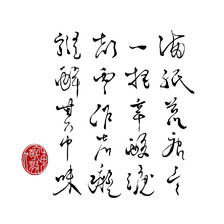 滿紙荒唐言
一把辛酸淚
都云作者癡
誰解其中味